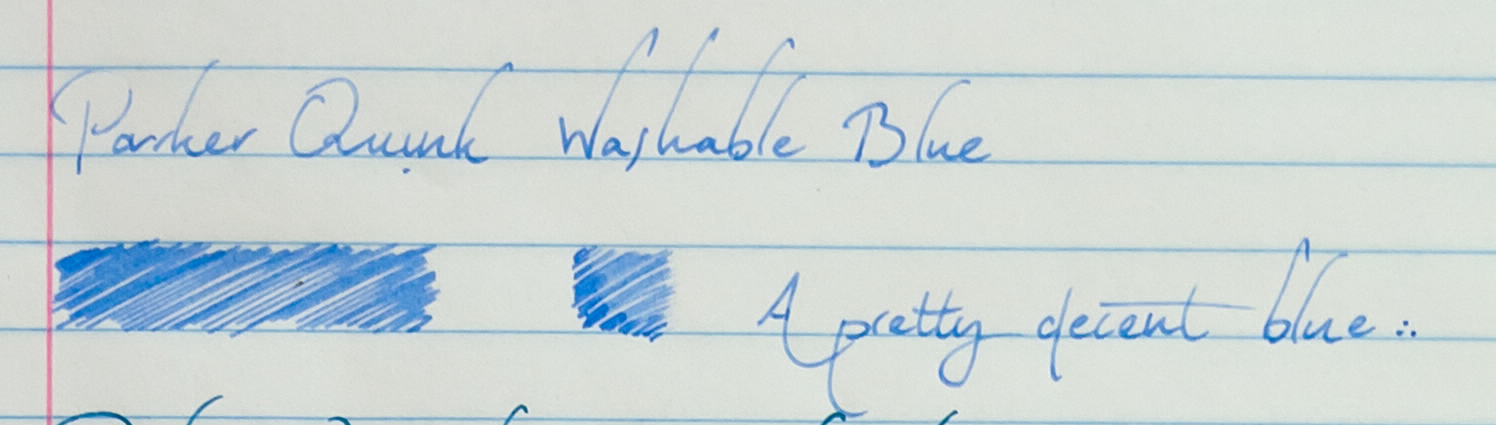 Parker Quink Washable Blue
A pretty decent blue ∴